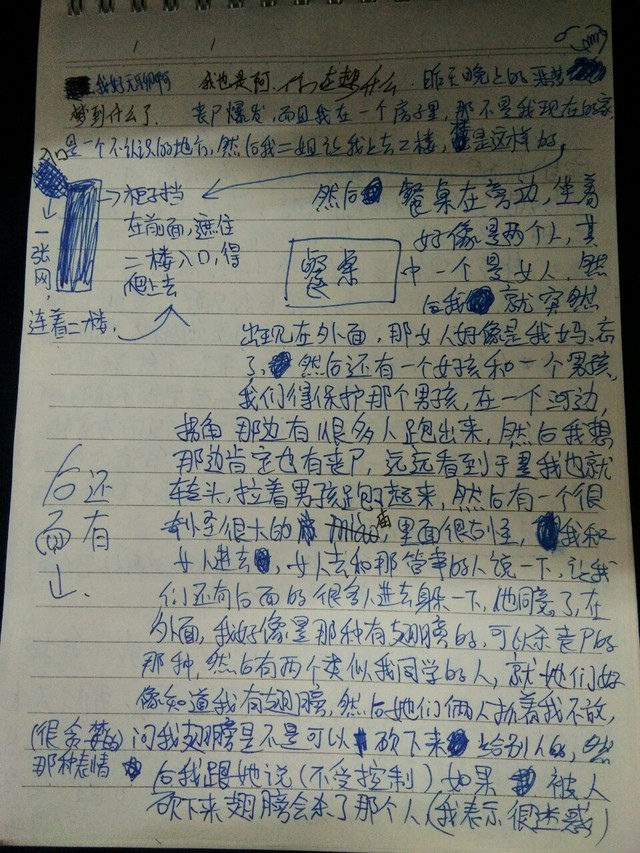 我好无聊啊 我也是阿. 你在想什么. 昨天晚上的恶梦
梦到什么了. 丧尸爆发, 而且我在一个房子里, 那不是我现在的家
是一个不认识的地方, 然后我二姐让我上去二楼, 是这样的,
入口
一张网,
连着二楼.
柜子挡
在前面, 遮住
二楼入口, 得
爬上去
然后 餐桌在旁边, 坐着
餐桌
好像是两个人, 其
中一个是女人, 然
后我 就突然
出现在外面, 那女人好像是我妈, 忘
了, 然后还有一个女孩和一个男孩,
我们得保护那个男孩, 在一个河边,
拐角 那边有很多人跑出来, 然后我想
那边肯定也有丧尸, 远远看到于是我也就
转头, 拉着男孩跑了起来, 然后有一个很
很大的 miao庙, 里面很古怪, 我和
女人进去, 女人去和那管事的人说一下, 让我
们还有后面的很多人进去躲一下, 他同意了, 在
外面, 我好像是那种有翅膀的, 可以杀丧尸的
那种, 然后有两个类似我同学的人, 就她们好
像知道我有翅膀, 然后她们俩人抓着我不放,
(很贪婪的 问我翅膀是不是可以 砍下来 给别人的, 然
那种表情 后我跟她说(不受控制)如果 被人
砍下来翅膀会杀了那个人(我表示很迷惑)
后面还有